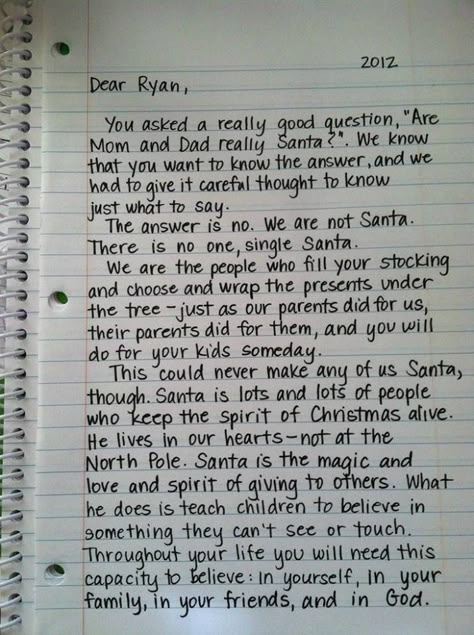 2012
Dear Ryan,
You asked a really good question, "Are
Mom and Dad really Santa?". We know
that you want to know the answer, and we
had to give it careful thought to know
just what to say.
The answer is no. We are not Santa.
There is no one, single Santa.
We are the people who fill your stocking
and choose and wrap the presents under
the tree - just as our parents did for us,
their parents did for them, and you will
do for your kids someday.
This could never make any of us Santa,
though. Santa is lots and lots of people
who keep the spirit of Christmas alive.
He lives in our hearts - not at the
North Pole. Santa is the magic and
love and spirit of giving to others. What
he does is teach children to believe in
something they can't see or touch.
Throughout your life you will need this
capacity to believe: in yourself, in your
family, in your friends, and in God.